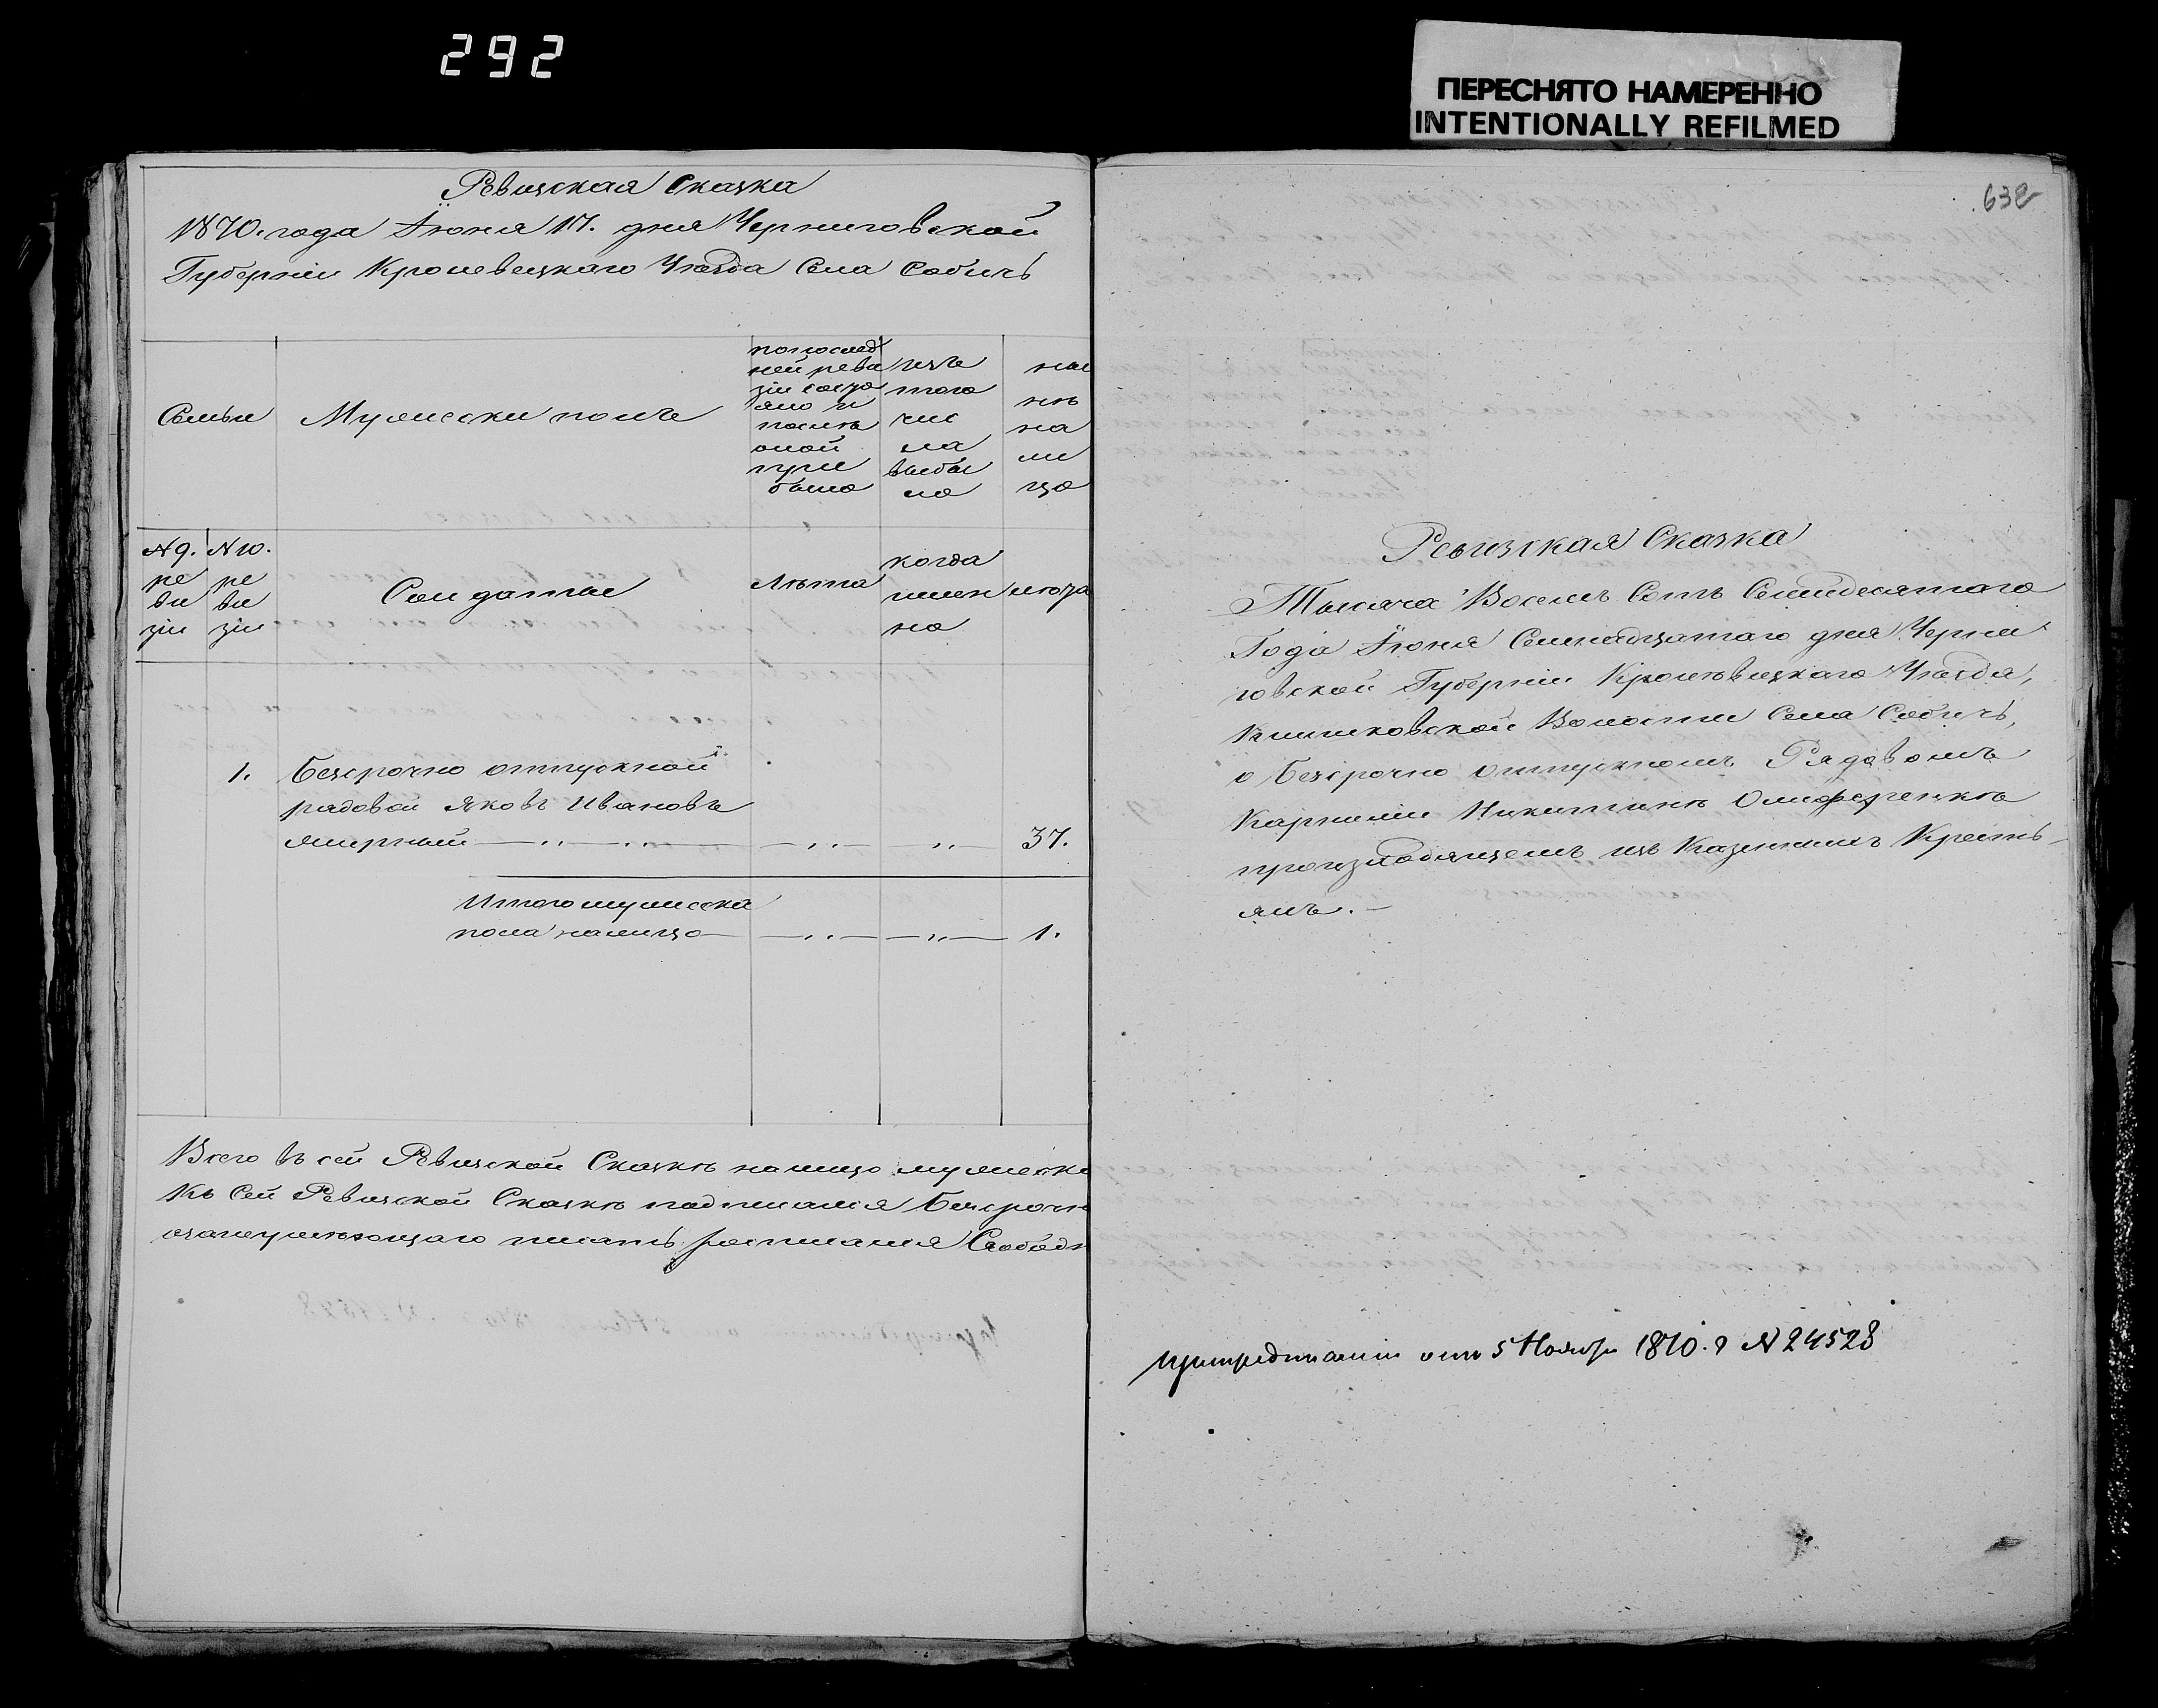 292
ПЕРЕСНЯТО НАМЕРЕННО
INTENTIONALLY REFILMED
Ревизская Сказка
1870. года Іюня 17. дня Черниговской
Губерніи Кролевецкаго Уѣзда Села Собичь
Семьи
Мужески полъ
по послед
ней реви
зіи состо
яло и
послѣ
оной
при
было
изъ
того
чис
ла
выбы
ло
ны
нѣ
на
ли
цо
№ 9. ре ви зіи
№ 10. ре ви зіи
Солдаты
Лѣта
когда
имен
но
лѣта
1. Безсрочно отпускной
рядовой Яковъ Ивановъ
37.
Итого мужеска
пола налицо 1.
Всего въ сей Ревизской Сказкѣ налицо мужеска
Къ сей Ревизской Сказкѣ подписался Безсрочн
росписался
632
Ревизская Сказка
Тысяча Восемъ Сотъ Семидесятаго
Года Іюня Семнадцатаго дня Черни
говской Губерніи Кролевецкаго Уѣзда,
Волости Села Собичь,
о безсрочно отпускномъ Рядовомъ
Никитинѣ
изъ Казенныхъ Кресть-
янъ.
при предписаніи отъ 5 Ноября 1870. г № 24528